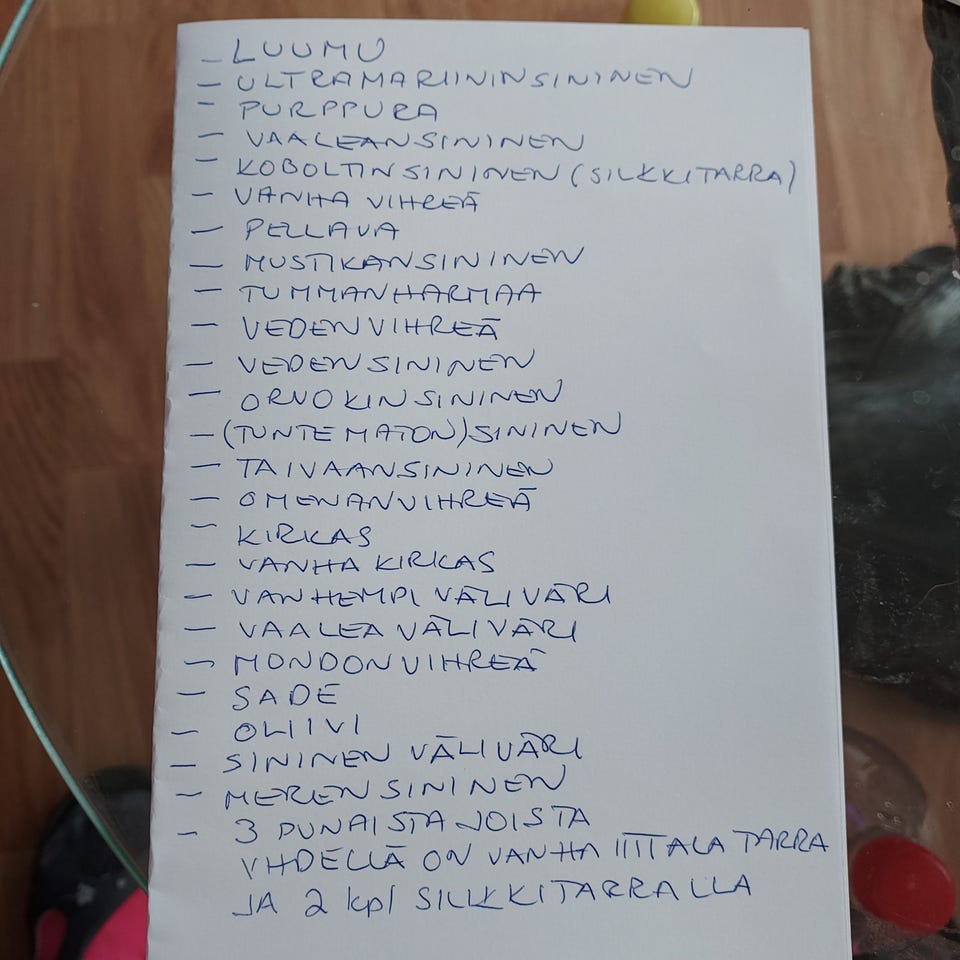 - LUUMU
- ULTRAMARIININSININEN
- PURPPURA
- VAALEANSININEN
- KOBOLTINSININEN (SILKKITARRA)
- VANHA VIHREÄ
- PELLAVA
- MUSTIKANSININEN
- TUMMANHARMAA
- VEDENVIHREÄ
- VEDENSININEN
- ORVOKINSININEN
- (TUNTEMATON) SININEN
- TAIVAANSININEN
- OMENANVIHREÄ
- KIRKAS
- VANHA KIRKAS
- VANHEMPI VÄLIVÄRI
- VAALEA VÄLIVÄRI
- MONDONVIHREÄ
- SADE
- OLIIVI
- SININEN VÄLIVÄRI
- MERENSININEN
- 3 PUNAISTA JOISTA
YHDELLÄ ON VANHA IITTALA TARRA
JA 2 kpl SILKKITARRALLA